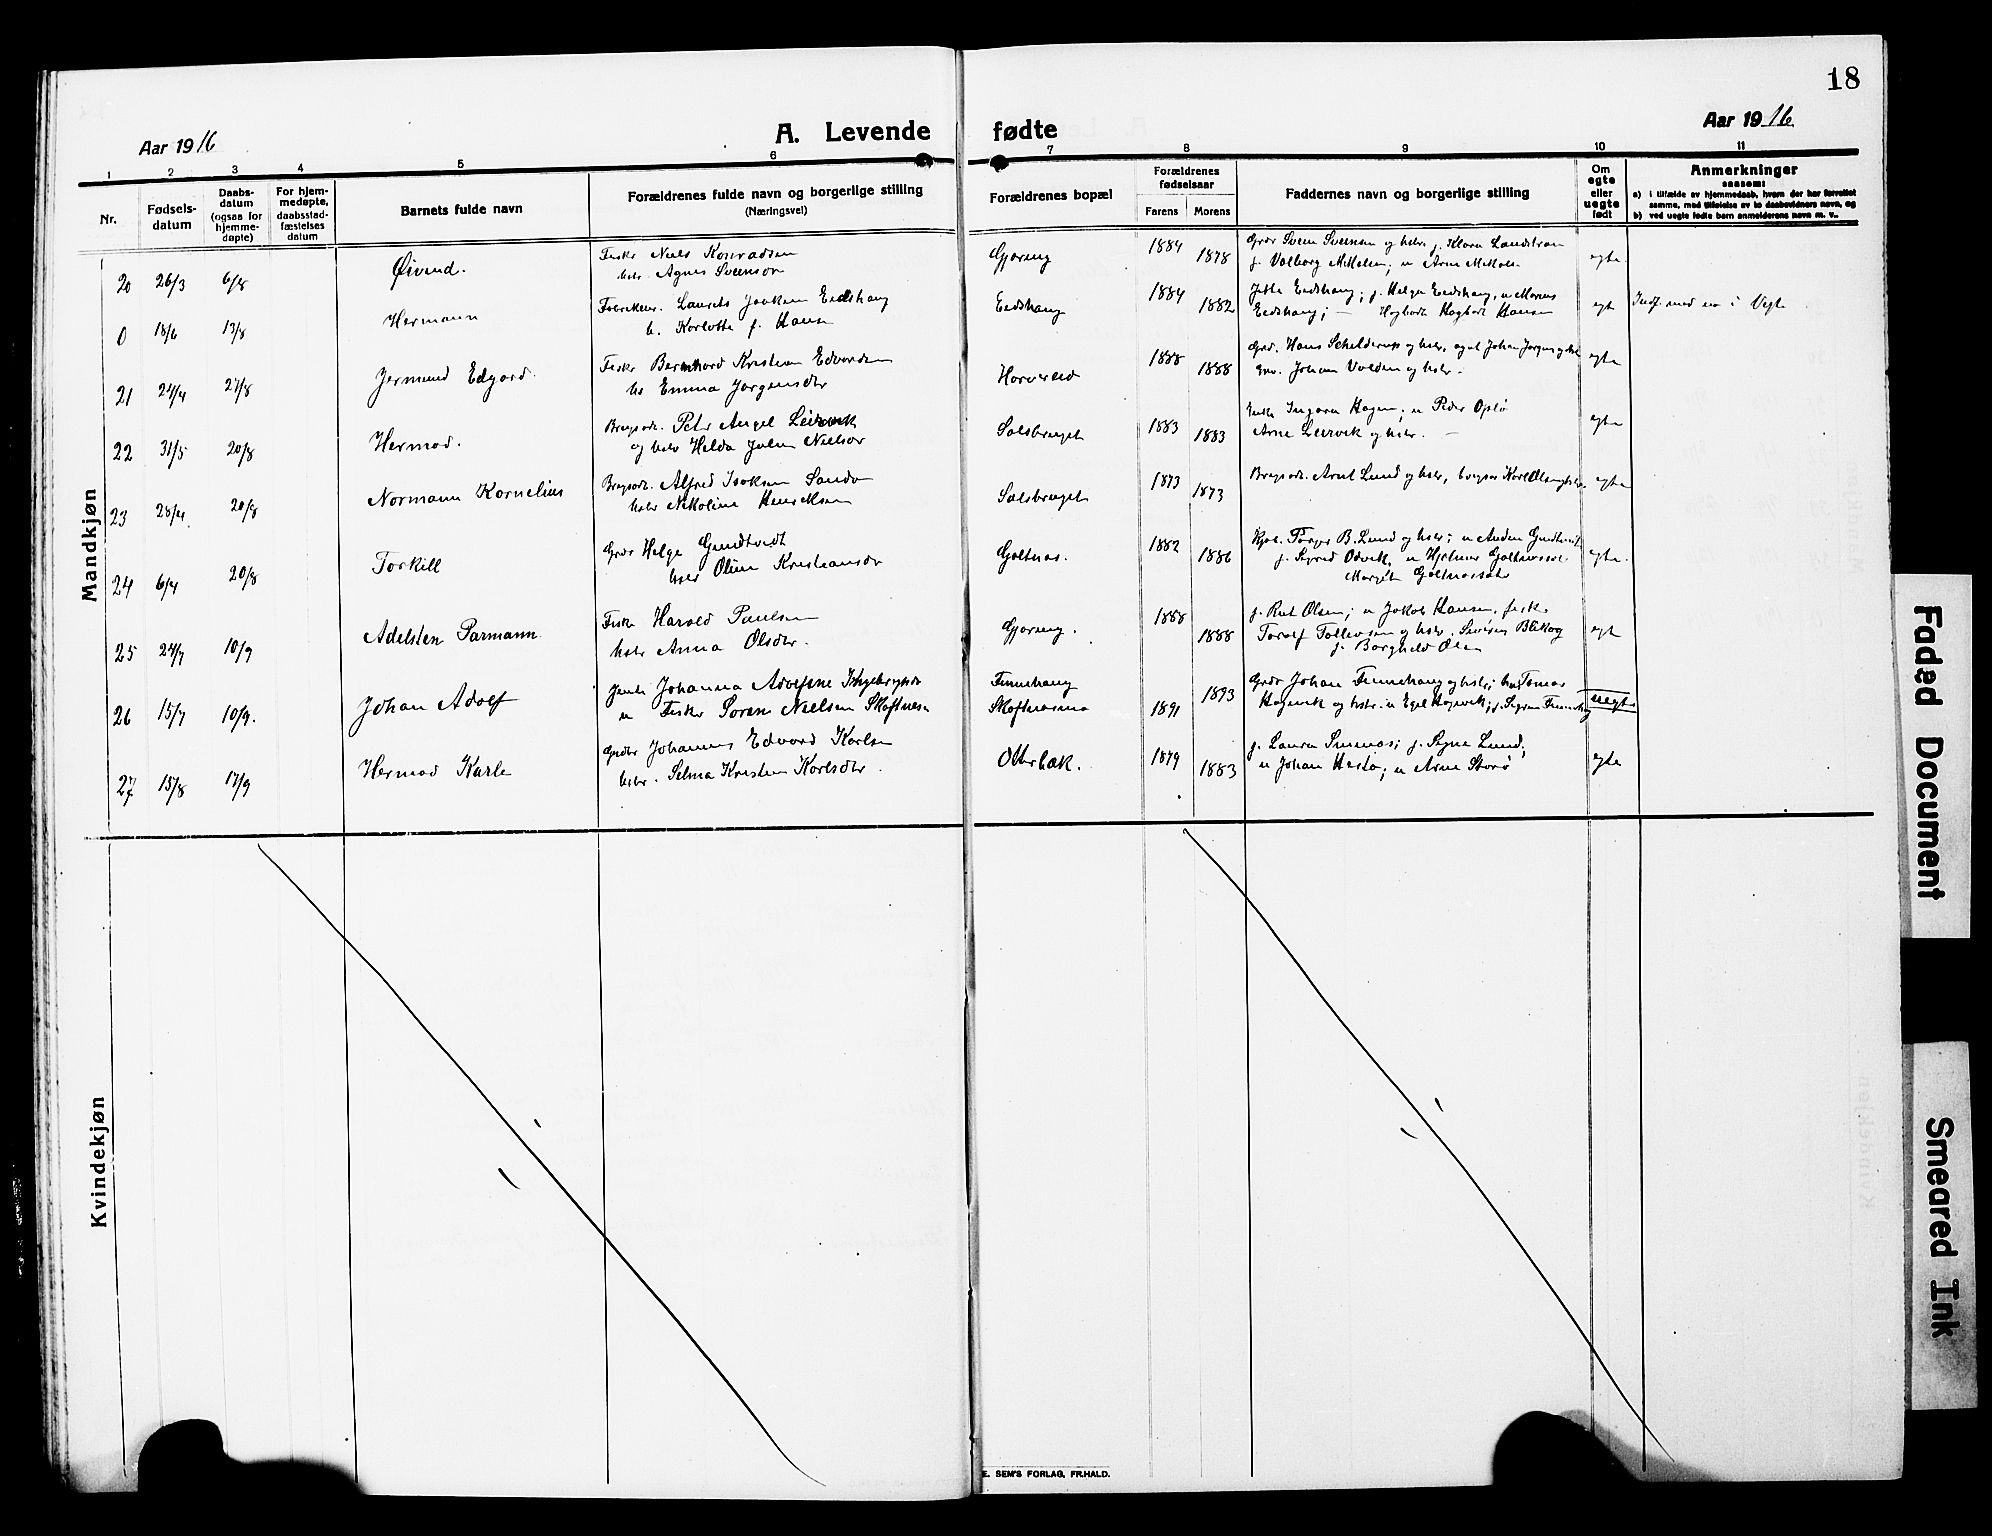 18
Aar 1916
A. Levende fødte
Aar 1916
1 2 3 4 5 6 7 8 9 10 11
Nr.
Fødsels-
datum
Daabs-
datum
(ogsaa for
hjemme-
døpte)
For hjem-
medøpte,
daabsstad-
fæstelses
datum
Barnets fulde navn
Forældrenes fulde navn og borgerlige stilling
(Næringsvei)
Forældrenes bopæl
Forældrenes
fødselsaar
Farens Morens
Faddernes navn og borgerlige stilling
Om
egte
eller
uegte
født
Anmerkninger
saasom:
a) i tilfælde av hjemmedaab, hvem der har forrettet
samme, med tilføielse av to daabsvidners navn, og
b) ved uegte fødte barn anmelderens navn m. v..
Mandkjøn
20 26/3 6/8 Øivend.
Fisker Niels Konradsen
hstr. Agnes Svensdr
Gjøreng 1884 1878
Grdr Svein Svensen og hstr, j. Klara Landstrøm
j. Valborg Mikkelsen; u Arne Mikkels.
egte.
0 18/6 13/8 Hermann
Laurits Joakim Eidshaug
h. Karlotte f. Hansen
Eidshaug 1884 1882
Eidshaug; j. Helga Eidshaug, u Marius
Eidshaug; — Hagbart Hansen
egte
Indf. med no i Vegte
21 24/4 27/8 Jermund Edgard.
Fisker Bernhard Kristian Edvardsen
hs Emma Jørgensdtr
Horvereid 1888 1888
Grd. Hans Schelderup og hstr,
Johan Volden og hstr. —
egte
22 31/5 20/8 Hermod.
Brugsarb. Peter Angel Leirvik
og hstr Helda Julie Nielsdr
Salsbruget 1883 1883
Ingeborg Hagen; u Peder Oplø
Arne Leirvik og hstr. —
egte
23 28/4. 20/8 Normann Kornelius
Brugsarb. Alfred Isaksen Sandø
hstr Nikoline Henriksen
Salsbruget 1873 1873
Brugsarb. Arnt Lund og hstr,
egte
24 6/4 20/8 Torkill
Grdr Helge Gundtvedt
hstr Oline Kristiansdr
Galtnes. 1882 1886
Kjøb. Torger B. Lund og hstr; u Anden Gundtvedt
j. Sigrid Odvik, u Hjelmer Galtnessæt
Margit Galtnessæt
egte.
25 24/7 10/9 Adelsten Parmann.
Fisker Harald Paulsen
hstr Anna Olsdtr.
Gjøreng. 1888 1888
j. Rut Olsen; u Jakob Hansen, fisk.
Torolf Tollevsen og hstr.
j. Borghild Olsen
egte
26 15/7 10/9. Johan Adolf
Johanna Adolfine Ingebrigtsdr
u Fisker Søren Nielsen Skoftnesm
Finnehaug
Skoftnesmo
1891 1893
Grdr Johan Finnehaug og hstr; Tomas
Hagevik og hstr. u Egil Hagevik; j. Sigrun Finnehaug
uegte
27 15/8 17/9 Hermod Karle
Grdbr Johannes Edvard Karlsen
hstr. Selma Kristine Karlsdtr.
Otterbæk. 1879 1883
j. Laura Smines; j. Signe Lund;
u Johan Hestø; u Arne Storø
egte
Kvindekjøn
E. SEM'S FORLAG, FR.HALD.
Faded Document
Smeared Ink